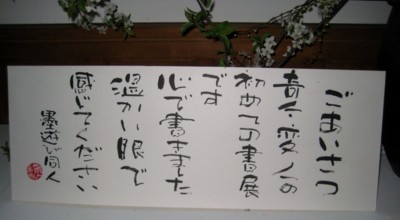 ごあいさつ
奇人・変人の
初めての書展
です
心で書きました
温かい眼で
感じてください
墨遊び同人